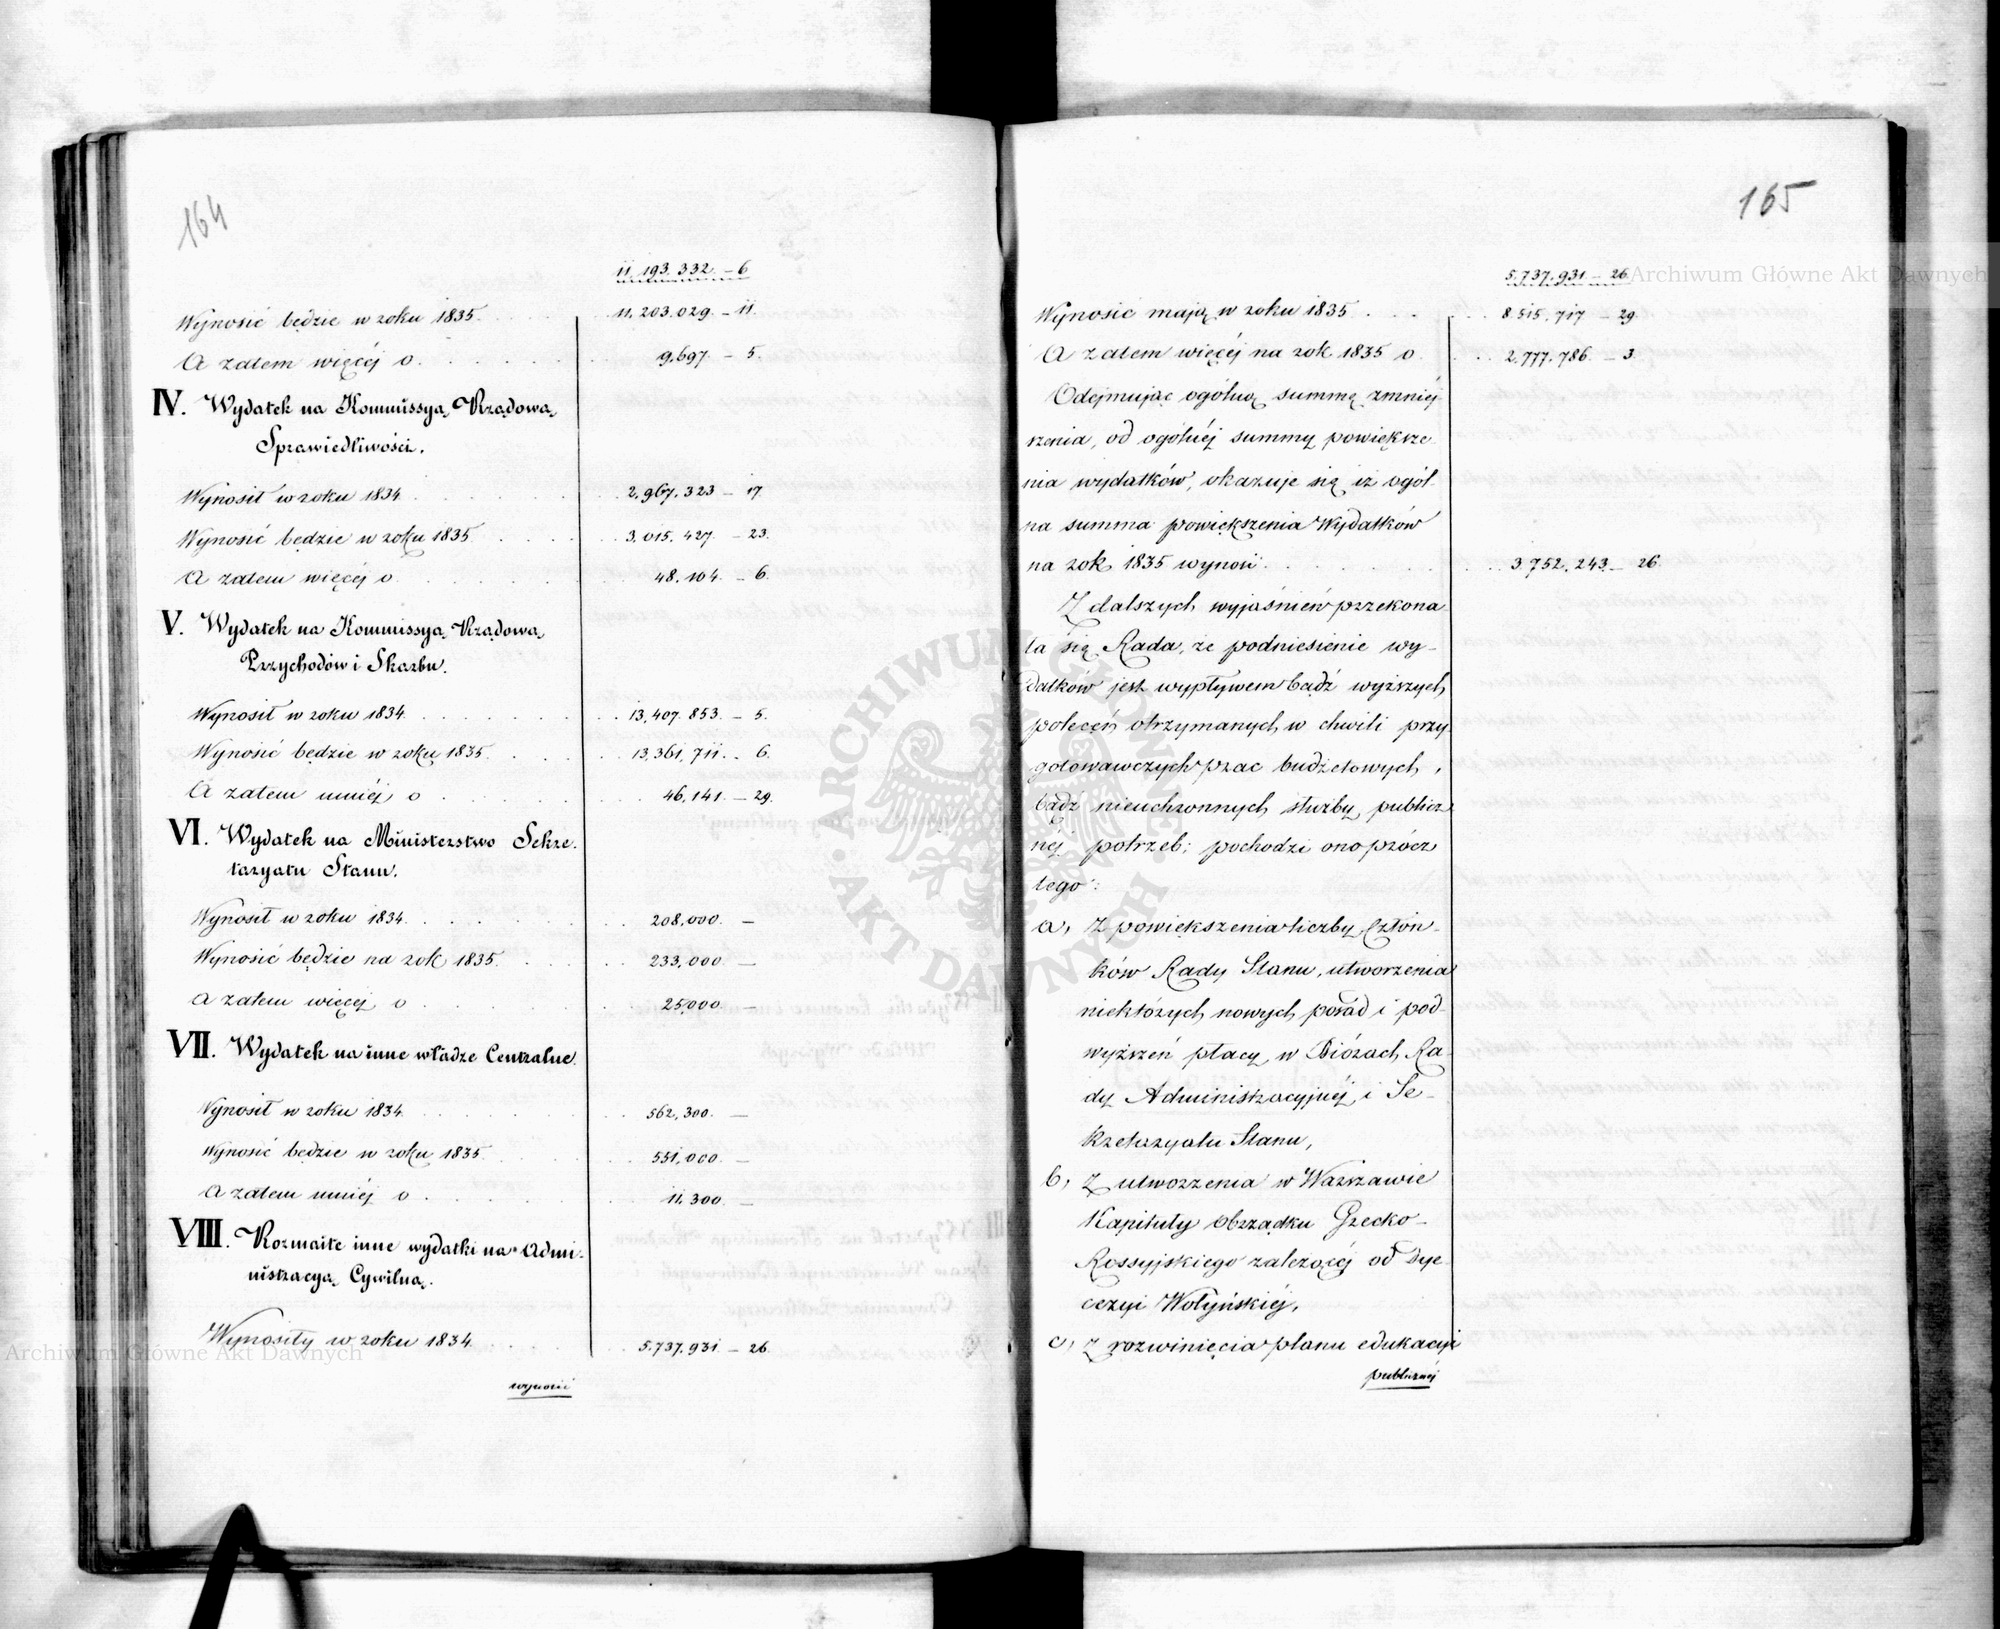 164
11.193.332. – 6
Wynosić będzie w roku 1835. 11.203.029. – 11.
A zatem więcéj o. 9,697. – 5.
IV. Wydatek na Kommissyą Rządową
Sprawiedliwości.
Wynosił w roku 1834 2,967,323 – 17.
Wynosić będzie w roku 1835 3,015.427. – 23.
A zatem więcéj o 48.104. – 6.
V. Wydatek na Kommissyą Rządową
Przychodów i Skarbu.
Wynosił w roku 1834. 13,407.853. – 5.
Wynosić będzie w roku 1835 13,361,711. – 6.
A zatem mniéj o 46,141. – 29.
VI. Wydatek na Ministerstwo Sekre-
taryatu Stanu.
Wynosił w roku 1834. 208,000. –
Wynosić będzie na rok 1835. 233,000. –
A zatem więcéj o 25,000. –
VII. Wydatek na inne władze Centralne.
Wynosił w roku 1834 562,300. –
Wynosić będzie w roku 1835 551,000. –
A zatem mniéj o 11.300. –
VIII. Rozmaite inne wydatki na Admi-
nistracyą Cywilną.
Wynosiły w roku 1834. 5.737.931 – 26.
wynosić
165
5.737.931 – 26
Wynosić mają w roku 1835 8.515.717 – 29.
A zatem więcéj na rok 1835 o 2.777.786. – 3.
Odejmując ogólną summę zmniéj-
szenia, od ogólnéj summy powiększe
nia wydatków, okazuje się iż ogól-
na summa powiększenia Wydatków
na rok 1835 wynosi 3.752.243. – 26.
Z dalszych wyjaśnień przekona
ła się Rada, że podniesienie wy-
datków jest wypływem bądź wyższych
poleceń otrzymanych w chwili przy
gotowawczych prac budżetowych,
bądź nieuchronnych służby publicz
néj potrzeb; pochodzi ono prócz
tego:
a, Z powiększenia liczby Człon-
ków Rady Stanu, utworzenia
niektórych nowych posad i pod-
wyższeń płacy w Biórach Ra-
dy Administracyjnéj i Se-
kretaryatu Stanu,
b, Z utworzenia w Warszawie
Kapituły Obrządku Grecko-
Rossyjskiego zależącéj od Dye-
cezyi Wołyńskiéj,
c, z rozwinięcia planu edukacyi
publicznéj
Archiwum Główne Akt Dawnych
Archiwum Główne Akt Dawnych
ARCHIWUM GŁÓWNE AKT DAWNYCH